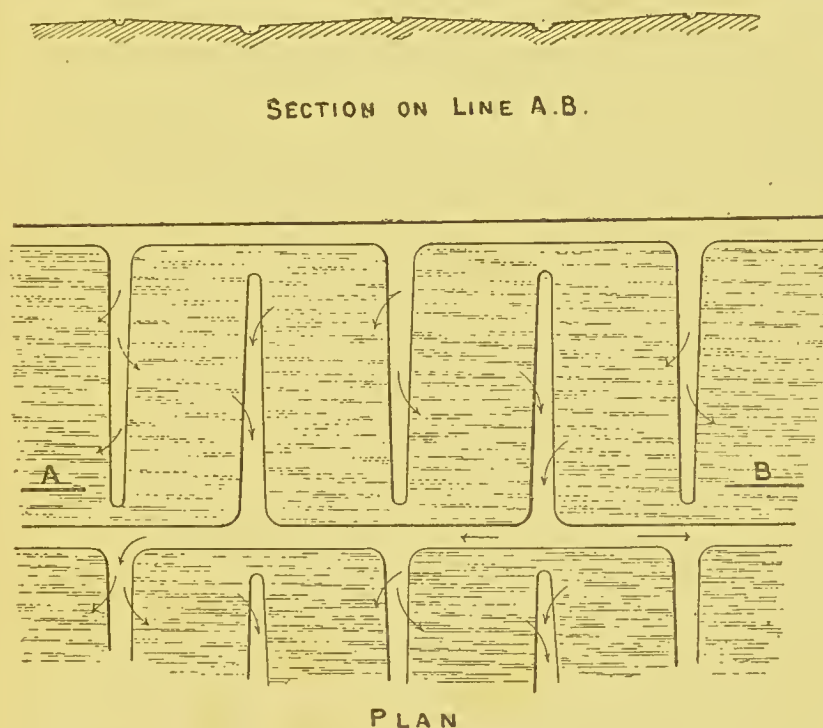 SECTION ON LINE A.B.
A
B
PLAN